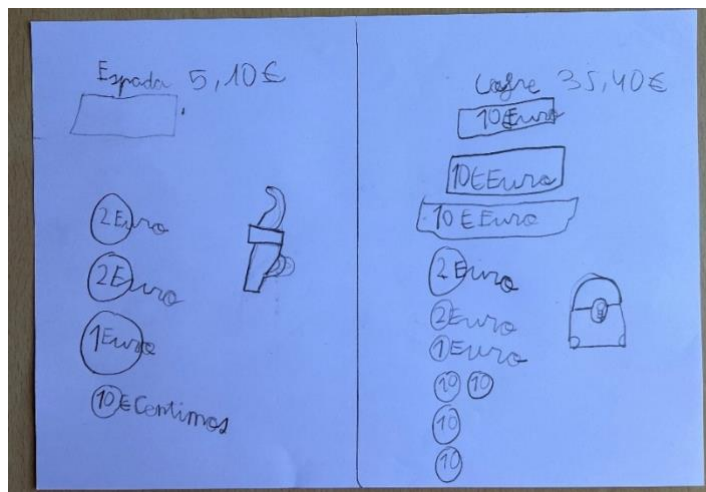 Espada 5,10€
2 Euro
2 Euro
1 Euro
10 € Centimos
Cofre 35,40€
10 € Euro
10 € Euro
10 € Euro
2 Euro
2 Euro
1 Euro
10 10
10
10